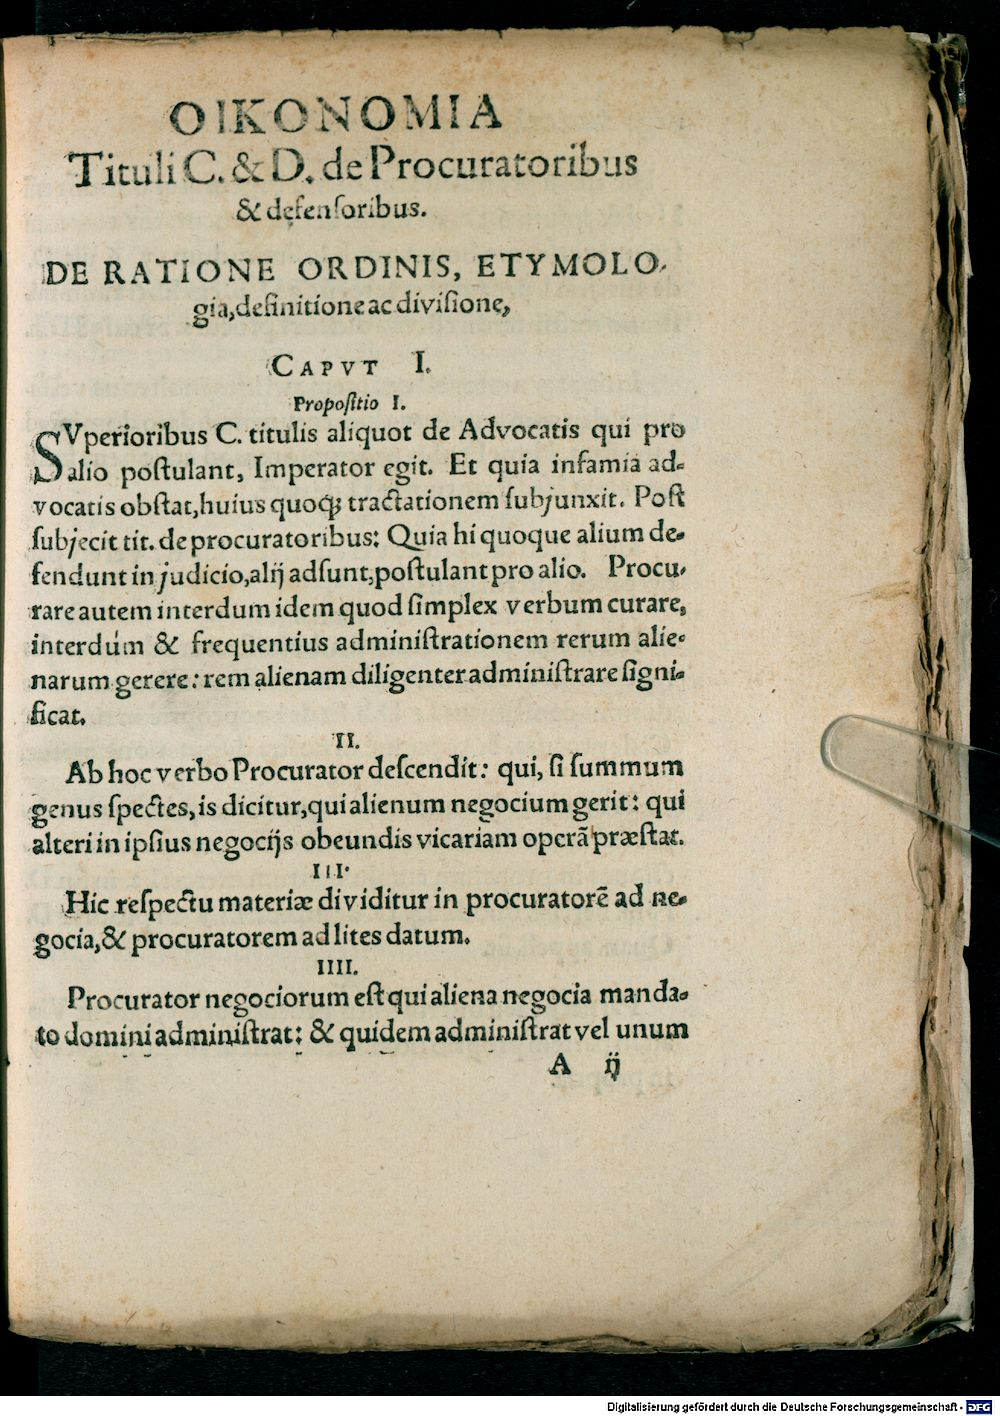 OIKONOMIA
Tituli C. & D. de Procuratoribus
& defensoribus.
DE RATIONE ORDINIS, ETYMOLO-
gia, definitione ac divisione,
CAPVT I.
Propositio I.
SVperioribus C. titulis aliquot de Advocatis qui pro
alio postulant, Imperator egit. Et quia infamia ad-
vocatis obstat, huius quoq; tractationem subjunxit. Post
subjecit tit. de procuratoribus: Quia hi quoque alium de-
fendunt in judicio, alij adsunt, postulant pro alio. Procu-
rare autem interdum idem quod simplex verbum curare,
interdum & frequentius administrationem rerum alie-
narum gerere: rem alienam diligenter administrare signi-
ficat.
II.
Ab hoc verbo Procurator descendit: qui, si summum
genus spectes, is dicitur, qui alienum negocium gerit: qui
alteri in ipsius negocijs obeundis vicariam operã præstat.
III.
Hic respectu materiæ dividitur in procuratorẽ ad ne-
gocia, & procuratorem ad lites datum.
IIII.
Procurator negociorum est qui aliena negocia manda-
to domini administrat: & quidem administrat vel unum
A ij
Digitalisierung gefördert durch die Deutsche Forschungsgemeinschaft - DFG